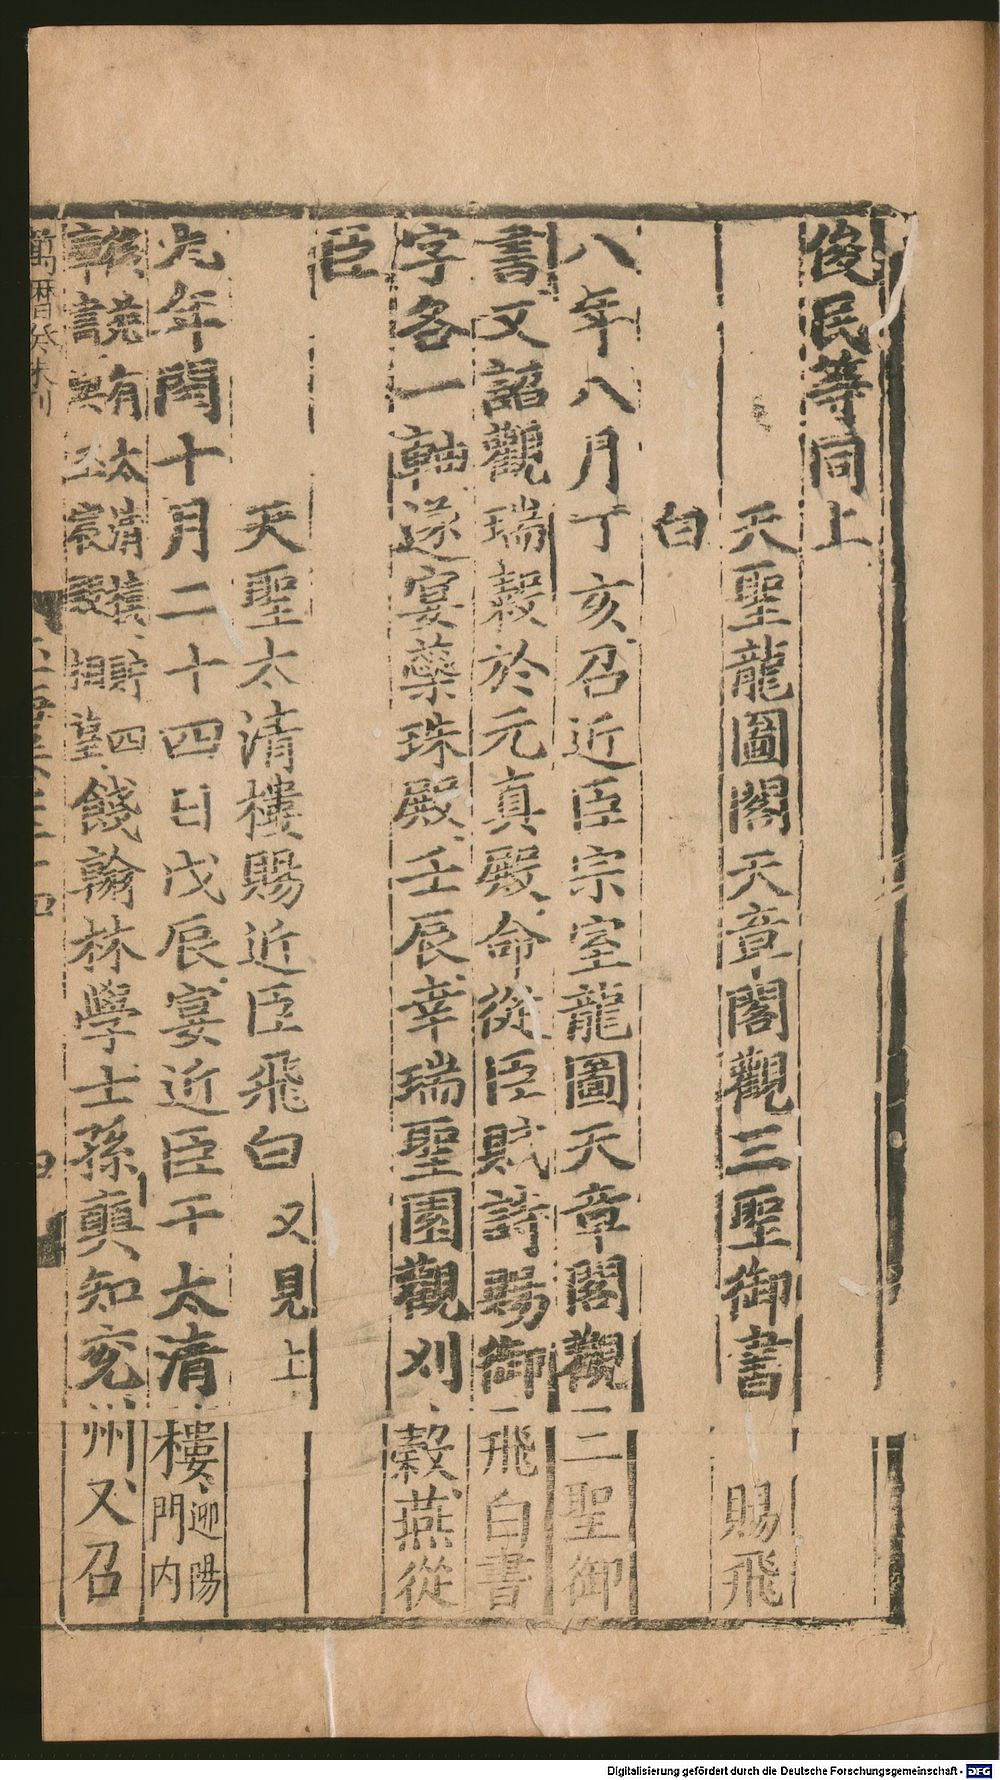 俊民等同上
天聖龍圖閣天章閣觀三聖御書 賜飛
白
八年八月丁亥召近臣宗室龍圖天章閣觀三聖御
書又詔觀瑞穀於元真殿命從臣賦詩賜御飛白書
字各一軸遂宴蘂珠殿壬辰幸瑞聖園觀刈穀燕從
臣
天聖太清樓賜近臣飛白 又見上
九年閏十月二十四日戊辰宴近臣于太清樓迎陽
門内
後苑有太清樓貯四
餞翰林學士孫奭知兗州又召
萬曆癸未刊
Digitalisierung gefördert durch die Deutsche Forschungsgemeinschaft - DFG